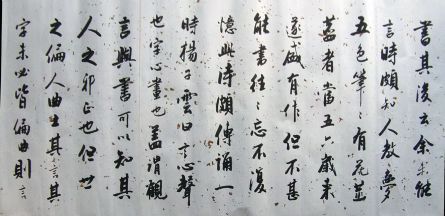 書其後云余未能
言時頗知人教夢
五色筆〻有花並
者當五六歲未
遂盛有作但不甚
能書往〻忘不復
憶與詩頗傳誦一
時揚子雲曰言心聲
也字心畫也蓋謂觀
言與書可以知其
人之邪正也但世
之偏人曲士其言其
字未必皆偏曲則言